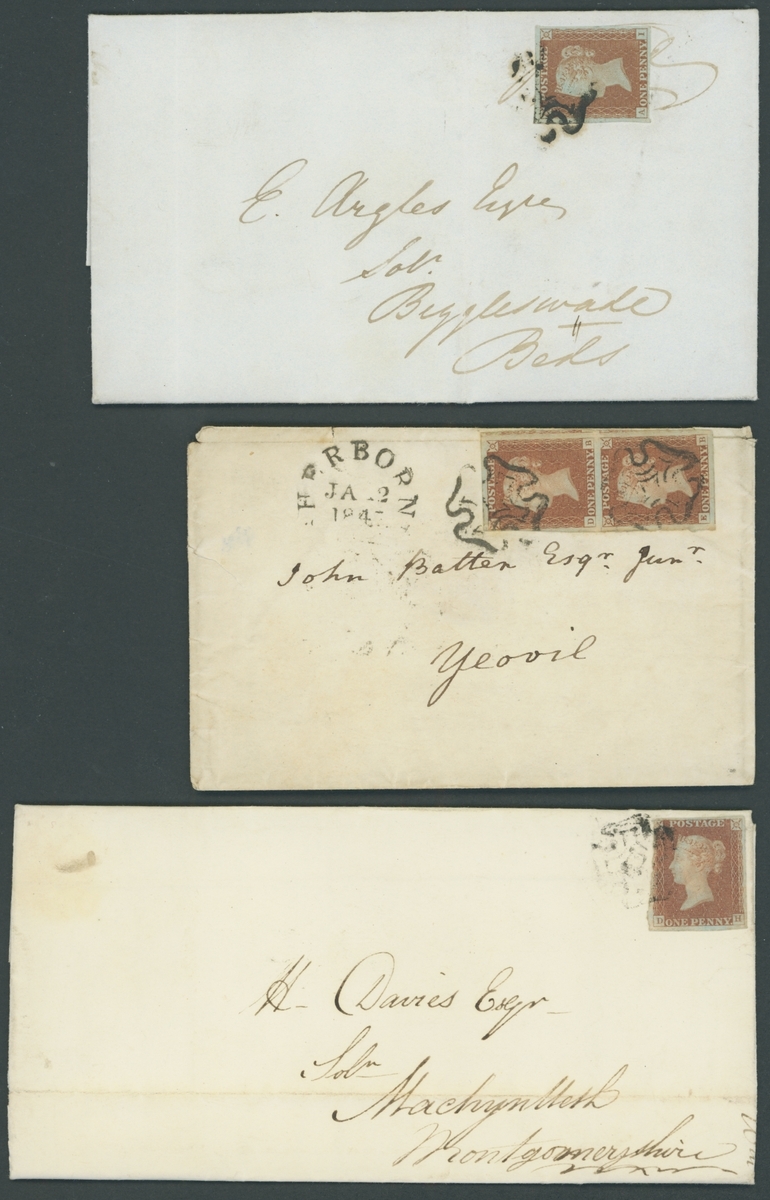 POSTAGE
ONE PENNY
A I
E. Argles Esqre
Solr.
Biggleswade
Beds
SHERBORNE
JA 2
184
POSTAGE
ONE PENNY
D B
POSTAGE
ONE PENNY
E B
John Batten Esqr. Junr.
Yeovil
POSTAGE
D ONE PENNY H
H- Davies Esqr-
Solr
Machynlleth
Montgomeryshire